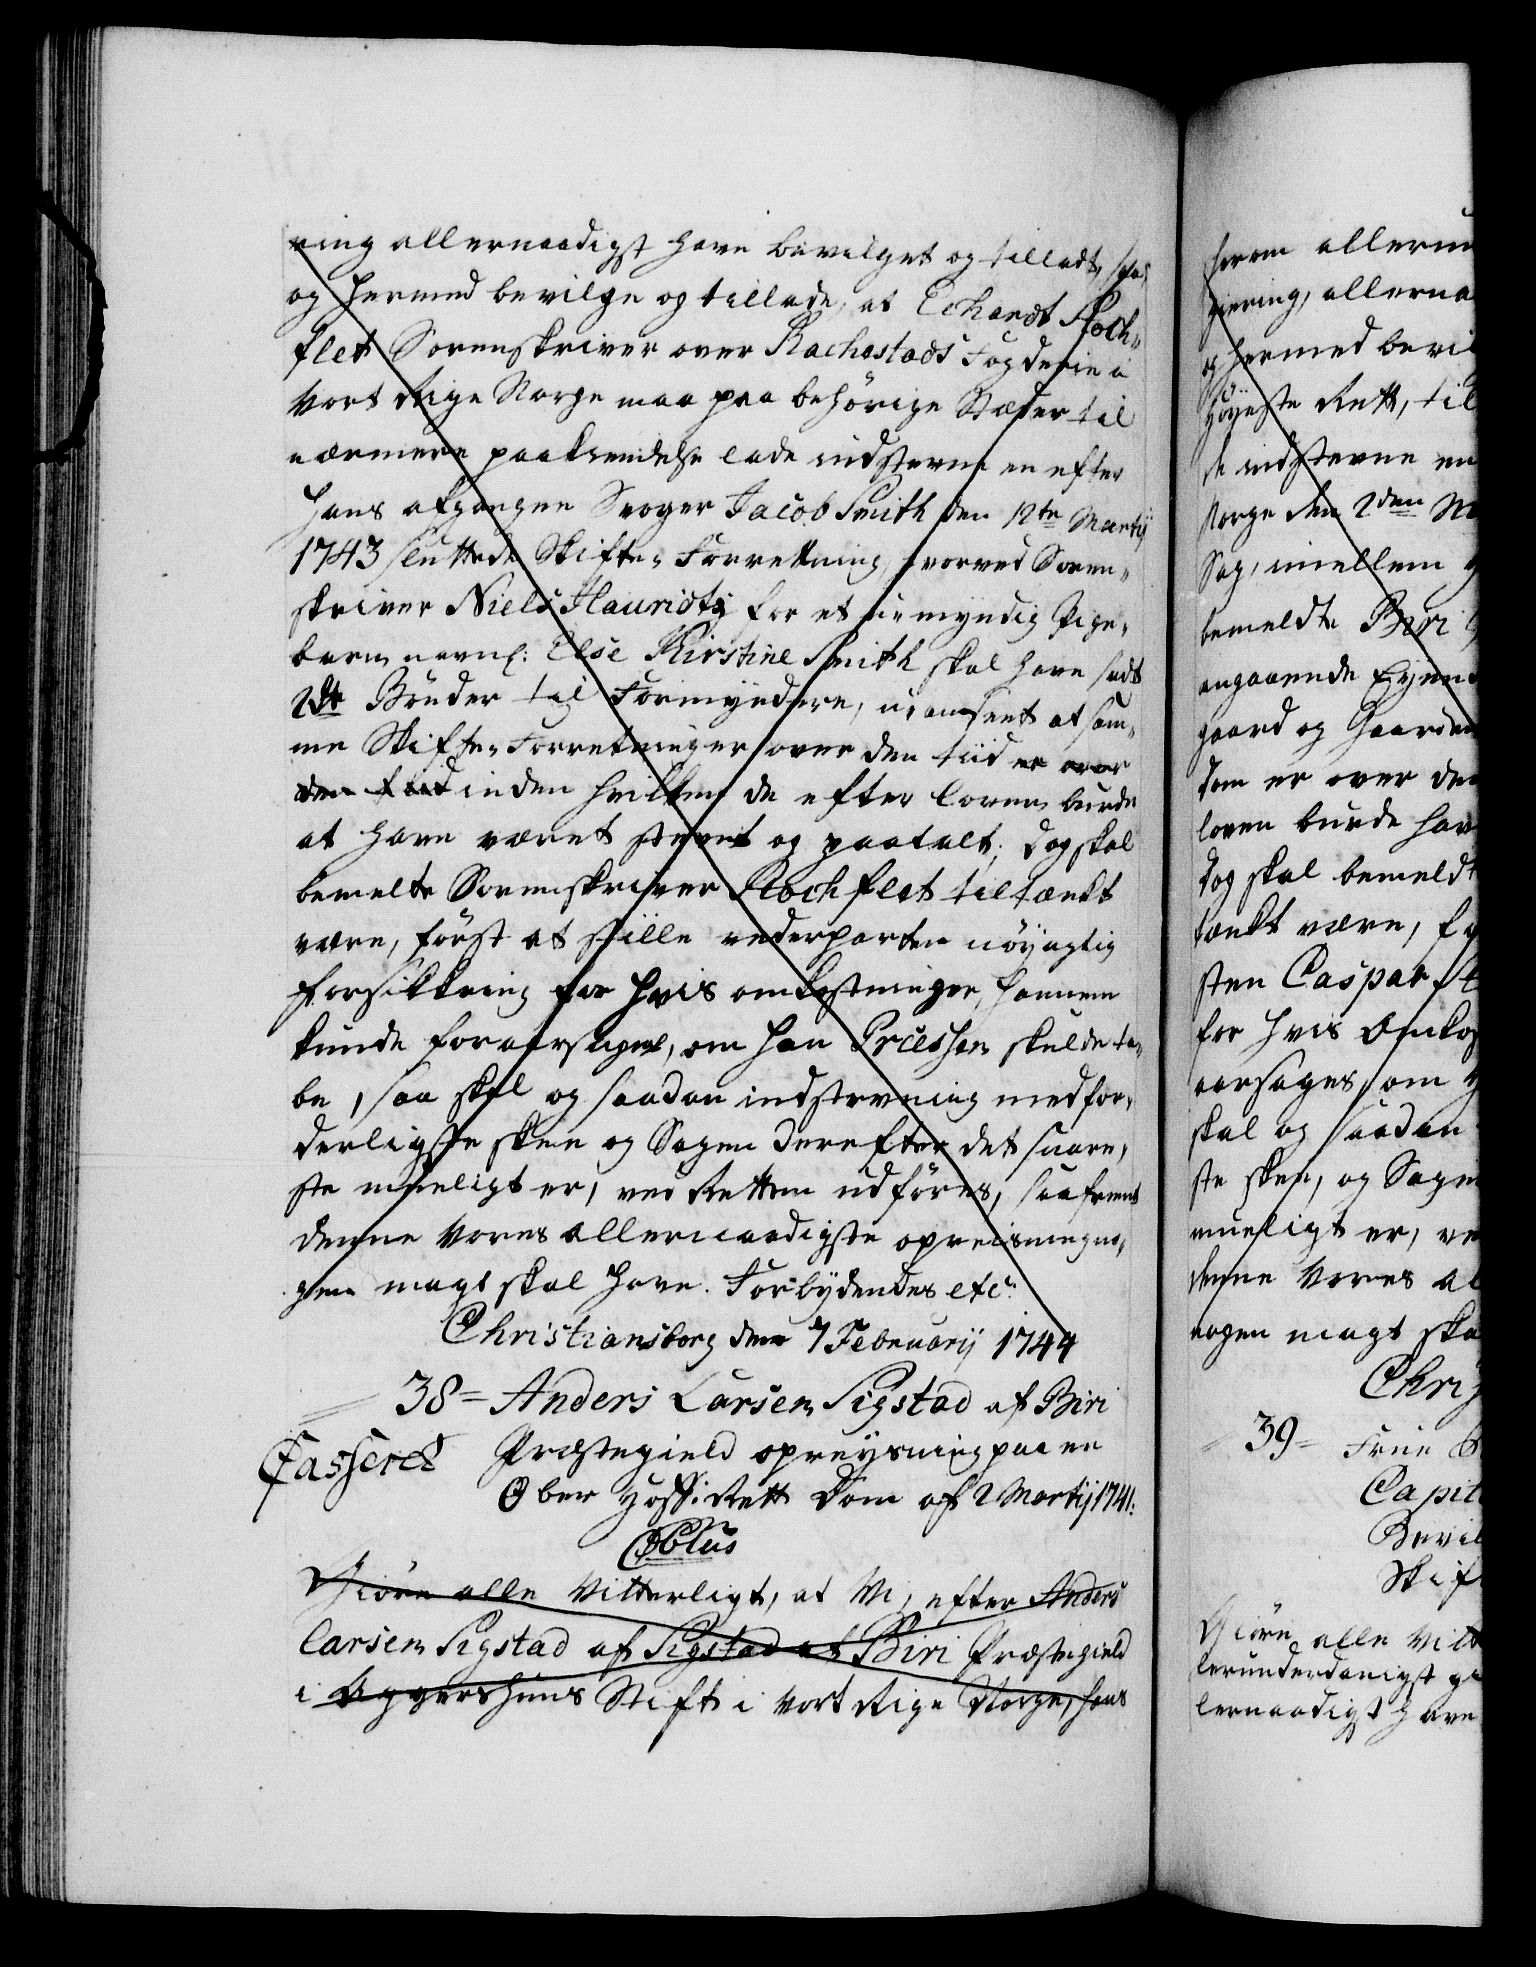 ring allernaadigst have bevilget og tilladt, saa
og hermed bevilge og tillade, at Echardt Stoch-
flet Sorenskriver over Rachestads Fogderie i
Vort Rige Norge maa paa behörige Stæder til
nærmere paakiendelse lade indstevne en efter
hans afgangne Svoger Jacob Smith den 12te Martij
1743 sluttede Skifte-Forrettning, hvorved Soren-
skriver Niels Hauridtz for et u-myndig Pige-
barn navnl: Else Kirstine Smith skal have sadt
2de Bönder til Formyndere, u-anseet at sam-
me Skifte-Forretninger over den tiid er over
den tiid inden hvilken de efter loven burde
at have været stevnt og paatalt; dog skal
bemelte Sorenskriver Stochflet tiltænkt
være, först at stille vederparten nöyagtig
forsikkring for hvis omkostninger, hannem
kunde foraarsages, om han Processen skulde ta-
be, saa skal og saadan indstevning medfor-
derligste skee og Sagen derefter det snare-
ste mueligt er, ved Retten udföres, saafremt
denne Vores allernaadigste opreisning no-
gen magt skal have. Forbydendes etc:
Christiansborg den 7 Februarij 1744
38 = Anders Larsen Sigstad af Biri
Casseret Præstegield opreysning paa en
Ober Hoff-Rett Dom af 2 Martij 1741.
C6tus
Giöre alle Vitterligt, at Vi, efter Anders
Larsen Sigstad af Sigstad af Biri Præstegield
i Aggershuus Stift i Vort Rige Norge, hans
herom allerun
giering, allerna
og hermed bevil
Höyeste Rett, til
de indstevne en
Norge den 2den M
Sag, imellem
bemeldte Biri
angaaende Eyen
gaard og Gaarden
dom er over den
loven burde hav
dog skal bemeldt
tænkt være, f
sten Caspar
for hvis Omkos
aarsages, om
skal og saadan
ste skee, og Sagen
mueligt er, ve
denne Vores al
nogen magt ska
Chri
39 = Frue
Capit
Bevil
Skif
Giöre alle Vitt
lerunderdanigst
lernaadigst have